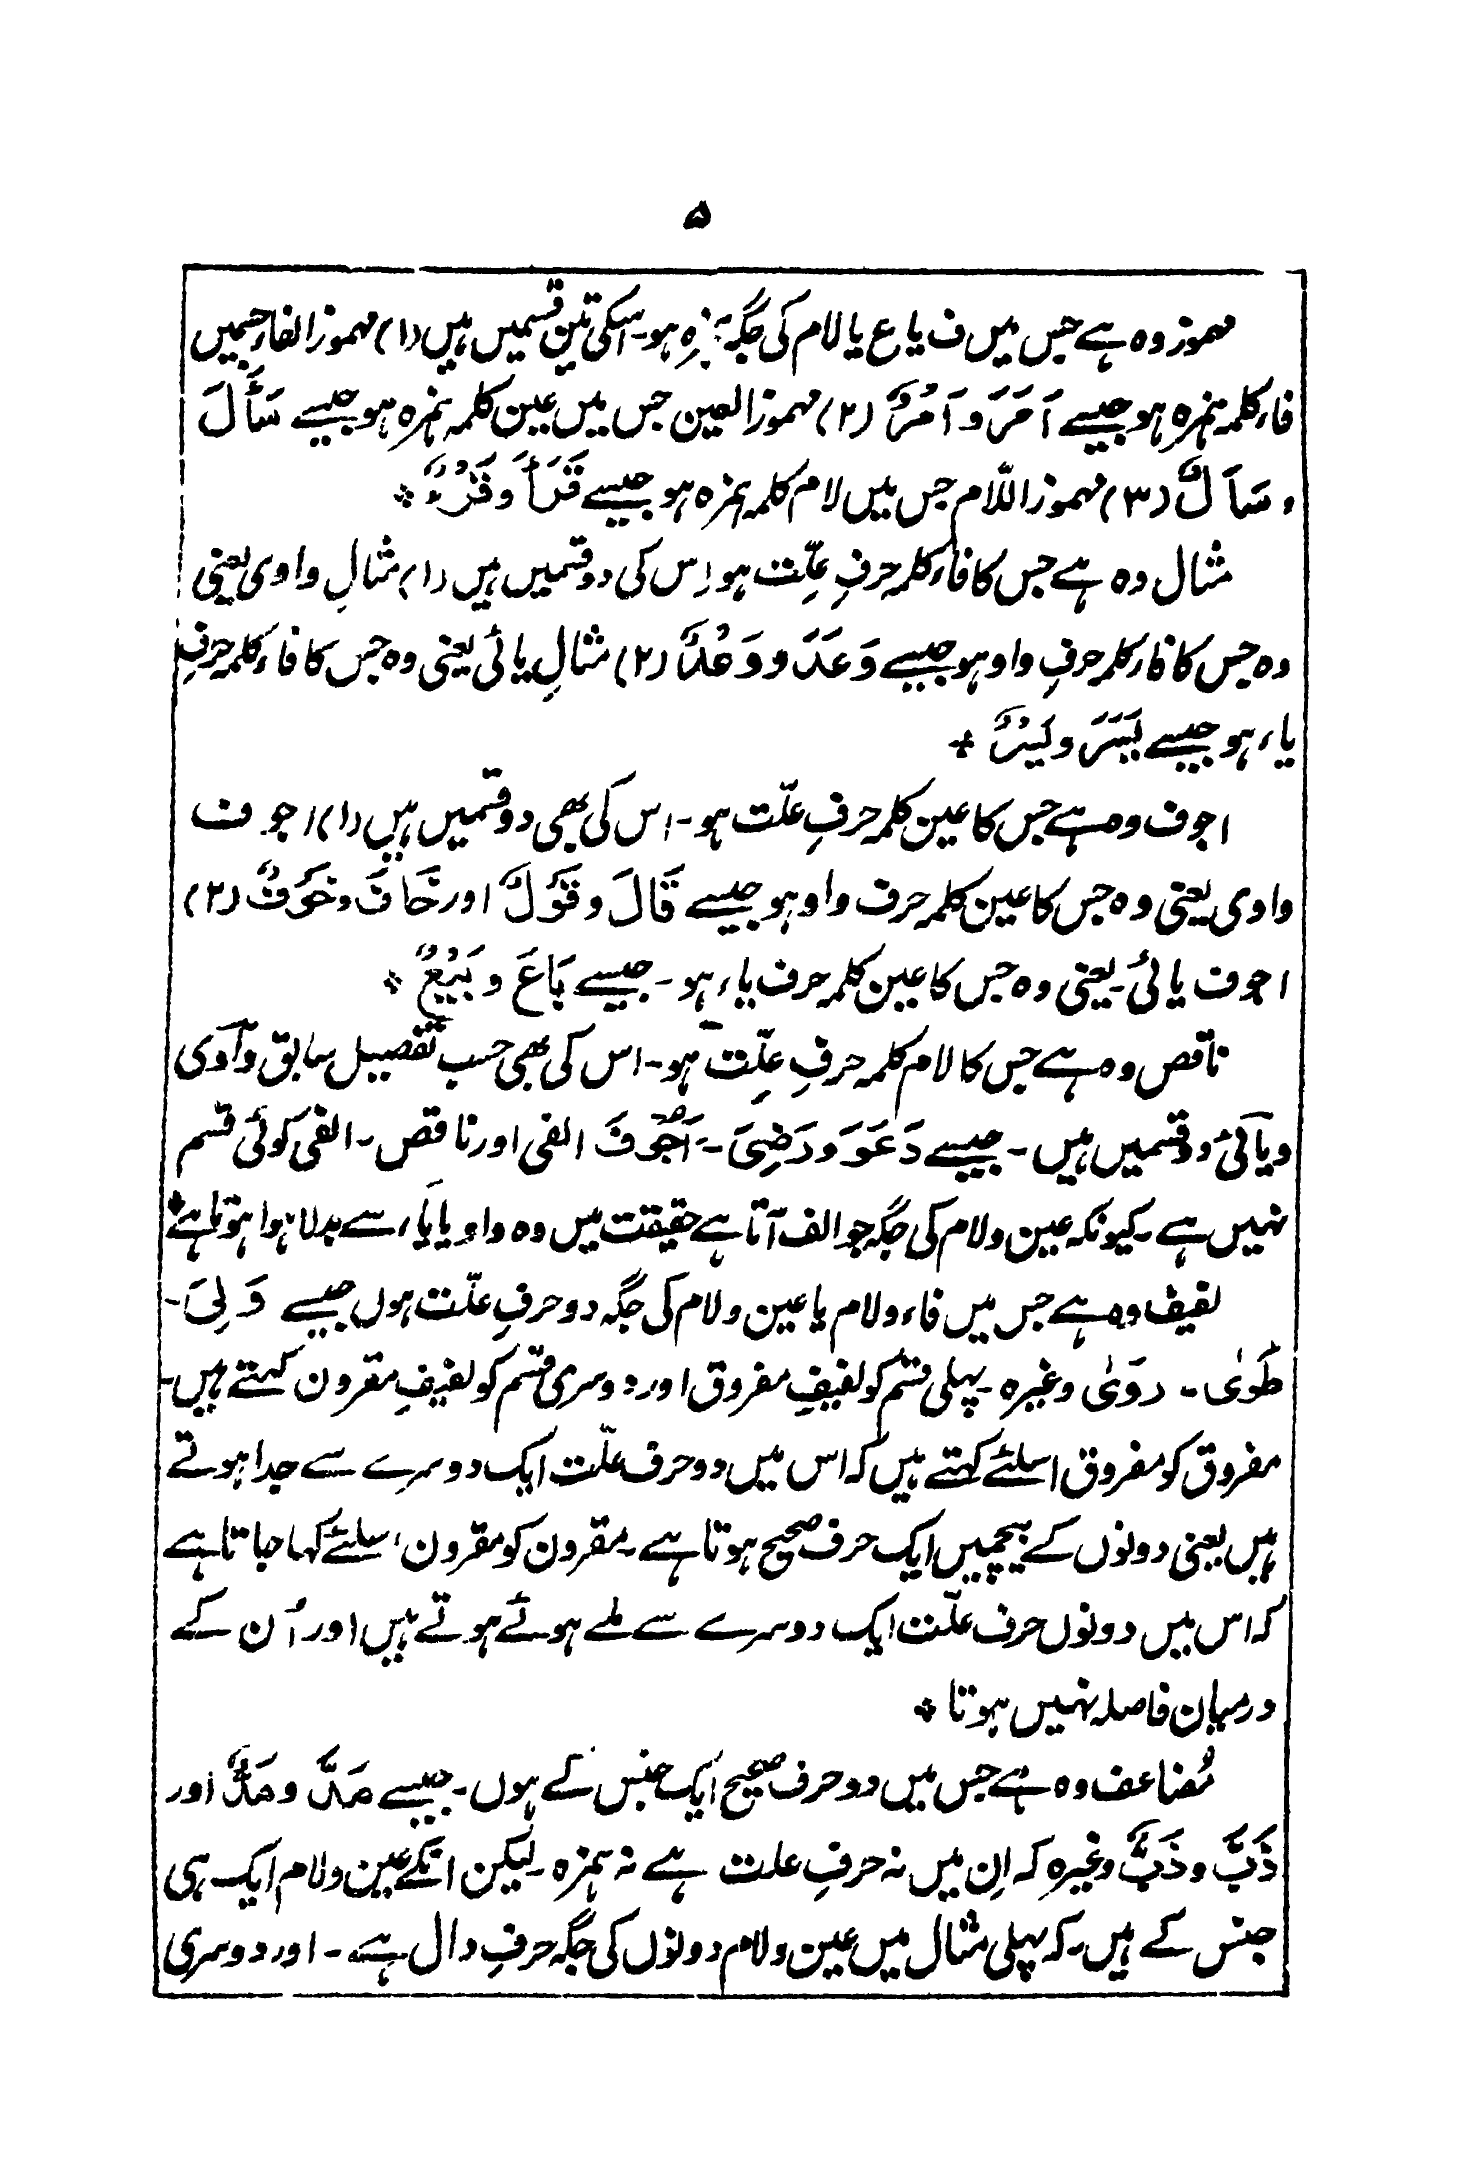 ۵
مہموز وہ ہے جس میں ف یا ع یا لام کی جگہ ہمزہ ہو۔ اسکی تین قسمیں ہیں (۱) مہموز الفاء جسمیں
فاء کلمہ ہمزہ ہو جیسے اَمَرَ و اَمْرٌ (۲) مہموز العین جس میں عین کلمہ ہمزہ ہو جیسے سَأَلَ
و سَآلٌ (۳) مہموز اللّام جس میں لام کلمہ ہمزہ ہو جیسے قَرَأَ و قَرْءٌ ؞
مثال وہ ہے جس کا فاء کلمہ حرفِ علِّت ہو اِس کی دو قسمیں ہیں (۱) مثالِ واوی یعنی
وہ جس کا فاء کلمہ حرفِ واو ہو جیسے وَعَدَ و وَعْدٌ (۲) مثالِ یائی یعنی وہ جس کا فاء کلمہ حرفِ
یاء ہو جیسے یَسَرَ و یَسْرٌ ؞
اجوف وہ ہے جس کا عین کلمہ حرفِ علّت ہو۔ اس کی بھی دو قسمیں ہیں (۱) اجوف
واوی یعنی وہ جس کا عین کلمہ حرف واو ہو جیسے قَالَ و قَوْلٌ اور خَافَ و خَوْفٌ (۲)
اجوف یائی۔ یعنی وہ جس کا عین کلمہ حرف یاء ہو۔ جیسے بَاعَ و بَیْعٌ ؞
ناقص وہ ہے جس کا لام کلمہ حرفِ علِّت ہو۔ اس کی بھی حسب تفصیل سابق واوی
ویائی دو قسمیں ہیں۔ جیسے دَعَوَ و رَضِیَ۔ اَجْوَفَ الفی اور ناقص۔ الفی کوئی قسم
نہیں ہے۔ کیونکہ عین و لام کی جگہ جو الف آتا ہے حقیقت میں وہ واو یا یاء سے بدلا ہوا ہوتا ہے ؞
لفیف وہ ہے جس میں فاء و لام یا عین و لام کی جگہ دو حرفِ علّت ہوں جیسے وَلِیَ۔
طَویٰ۔ رویٰ وغیرہ۔ پہلی قسم کو لفیفِ مفروق اور دوسری قسم کو لفیفِ مقرون کہتے ہیں۔
مفروق کو مفروق اسلئے کہتے ہیں کہ اس میں دو حرف علّت ایک دوسرے سے جدا ہوتے
ہیں یعنی دونوں کے بیچمیں ایک حرف صحیح ہوتا ہے۔ مقرون کو مقرون اسلئے کہا جاتا ہے
کہ اس میں دونوں حرف علّت ایک دوسرے سے ملے ہوئے ہوتے ہیں اور اُن کے
درمیان فاصلہ نہیں ہوتا ؞
مُضاعف وہ ہے جس میں دو حرف صحیح ایک جنس کے ہوں۔ جیسے مَدَّ و مَدٌّ اور
ذَبَّ و ذَبٌّ وغیرہ کہ اِن میں نہ حرفِ علت ہے نہ ہمزہ۔ لیکن انکے عین و لام ایک ہی
جنس کے ہیں۔ کہ پہلی مثال میں عین و لام دونوں کی جگہ حرفِ دال ہے۔ اور دوسری